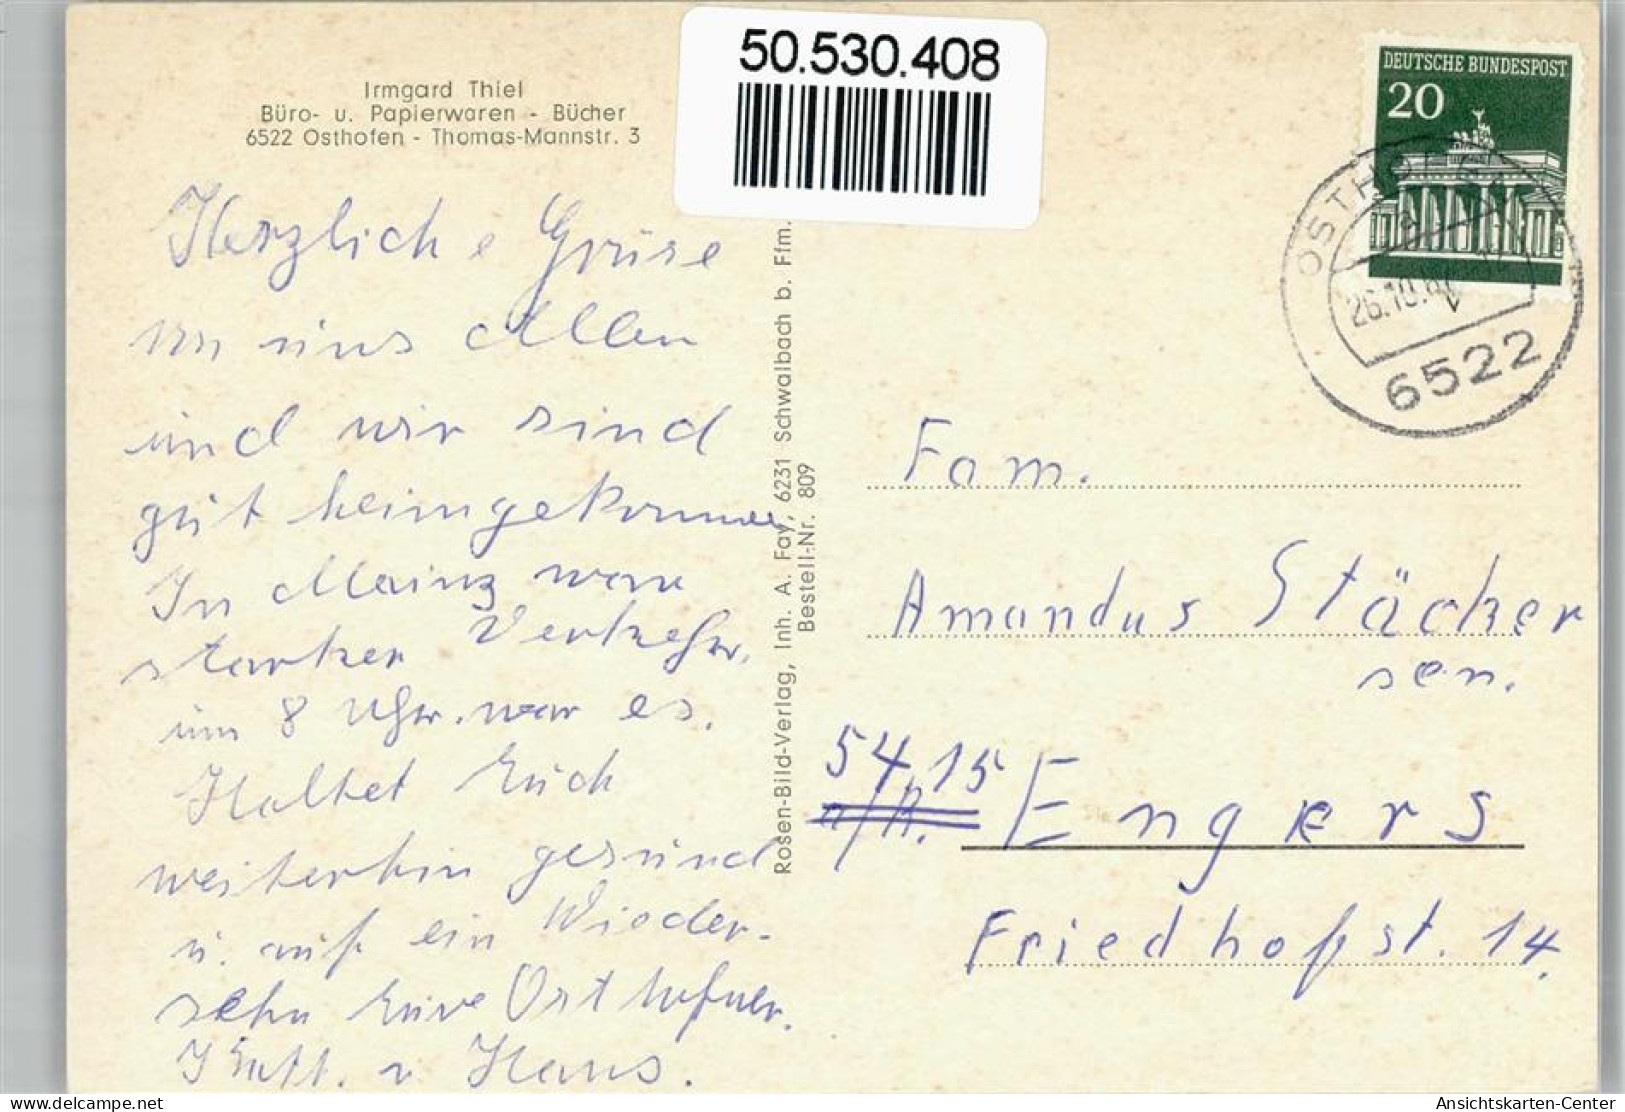 50.530.408
Irmgard Thiel
Büro- u. Papierwaren - Bücher
6522 Osthofen - Thomas-Mannstr. 3
DEUTSCHE BUNDESPOST
20
OSTHOFEN
26.10.
6522
Herzliche Grüse
von uns Allen
und wir sind
gut heimgekommen
In Mainz war
starker Verkehr,
um 8 Uhr. war es.
Haltet Euch
weiterhin gesund
u. auf ein Wieder-
sehn Eure Osthofner.
u Hans.
Rosen-Bild-Verlag, Inh. A. Fay, 6231 Schwalbach b. Ffm.
Bestell-Nr. 809
Fam.
Amandus Stäcker
sen.
5415
Engers
Friedhofst. 14.
delcampe.net
Ansichtskarten-Center